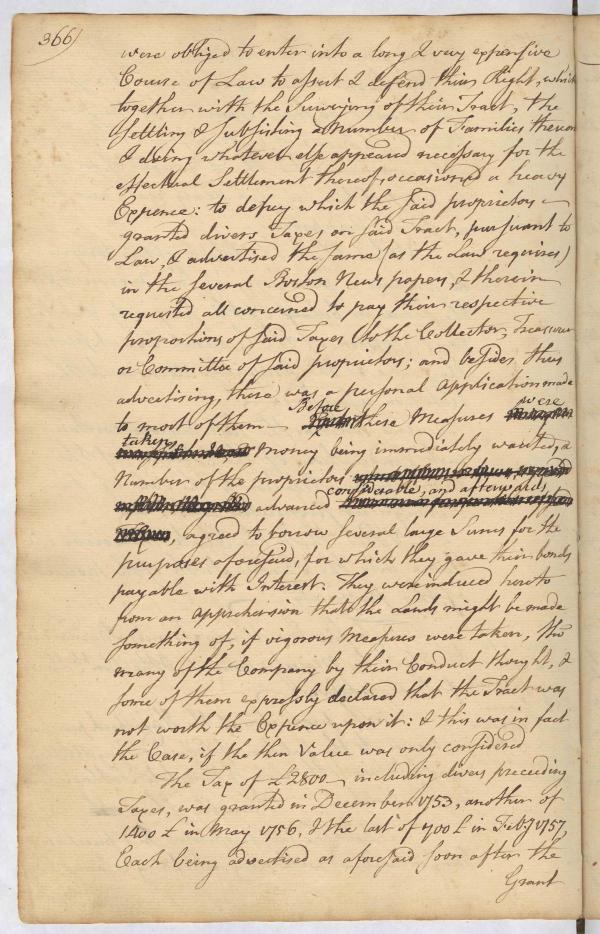 366)
were obliged to enter into a long & very expensive
Course of Law to assert & defend their Right, which
together with the Surveying of their Tract, the
settling & subsisting a Number of Families thereon
& doing whatever else appeared necessary for the
effectual Settlement thereof, occasioned a heavy
Expence: to defray which the said proprietors
granted divers Taxes on said Tract, pursuant to
Law, & advertised the same (as the Law requires)
in the several Boston News papers, & therein
requested all concerned to pay their respective
proportions of said Taxes to the Collector, Treasurer
or Committee of said proprietors; and besides thus
advertising, there was a personal Application made
to most of them Before these Measures were
taken Money being immediately wanted, a
Number of the proprietors
advanced considerable, and afterwards
, agreed to borrow several large Sums for the
purposes aforesaid, for which they gave their bonds
payable with Interest. They were induced hereto
from an apprehension that the Lands might be made
something of, if vigorous Measures were taken, tho'
many of the Company by their Conduct thought, &
some of them expressly declared that the Tract was
not worth the Expence upon it: & this was in fact
the Case, if the then Value was only considered
The Tax of £2800 including divers preceeding
Taxes, was granted in December 1753, another of
1400£ in May 1756, & the last of 700£ in Feb.y 1757,
Each being advertised as aforesaid soon after the
Grant